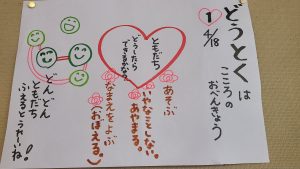 どうとくは
こころの
おべんきょう
1
4/18
ともだち
どうしたら
できるかな？
あそぶ
いやなことしない。
あやまる。
なまえをよぶ
（おぼえる。）
どんどん
ともだち
ふえるとうれしいね！